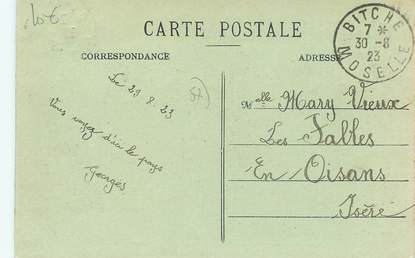 10-6
CARTE POSTALE
CORRESPONDANCE
ADRESSE
BITCHE
7 *
30-8
23
MOSELLE
Le 29.8.23
Vous voyez d'ici le pays
Georges
Melle Mary Vieux
Les Sables
En Oisans
Isère